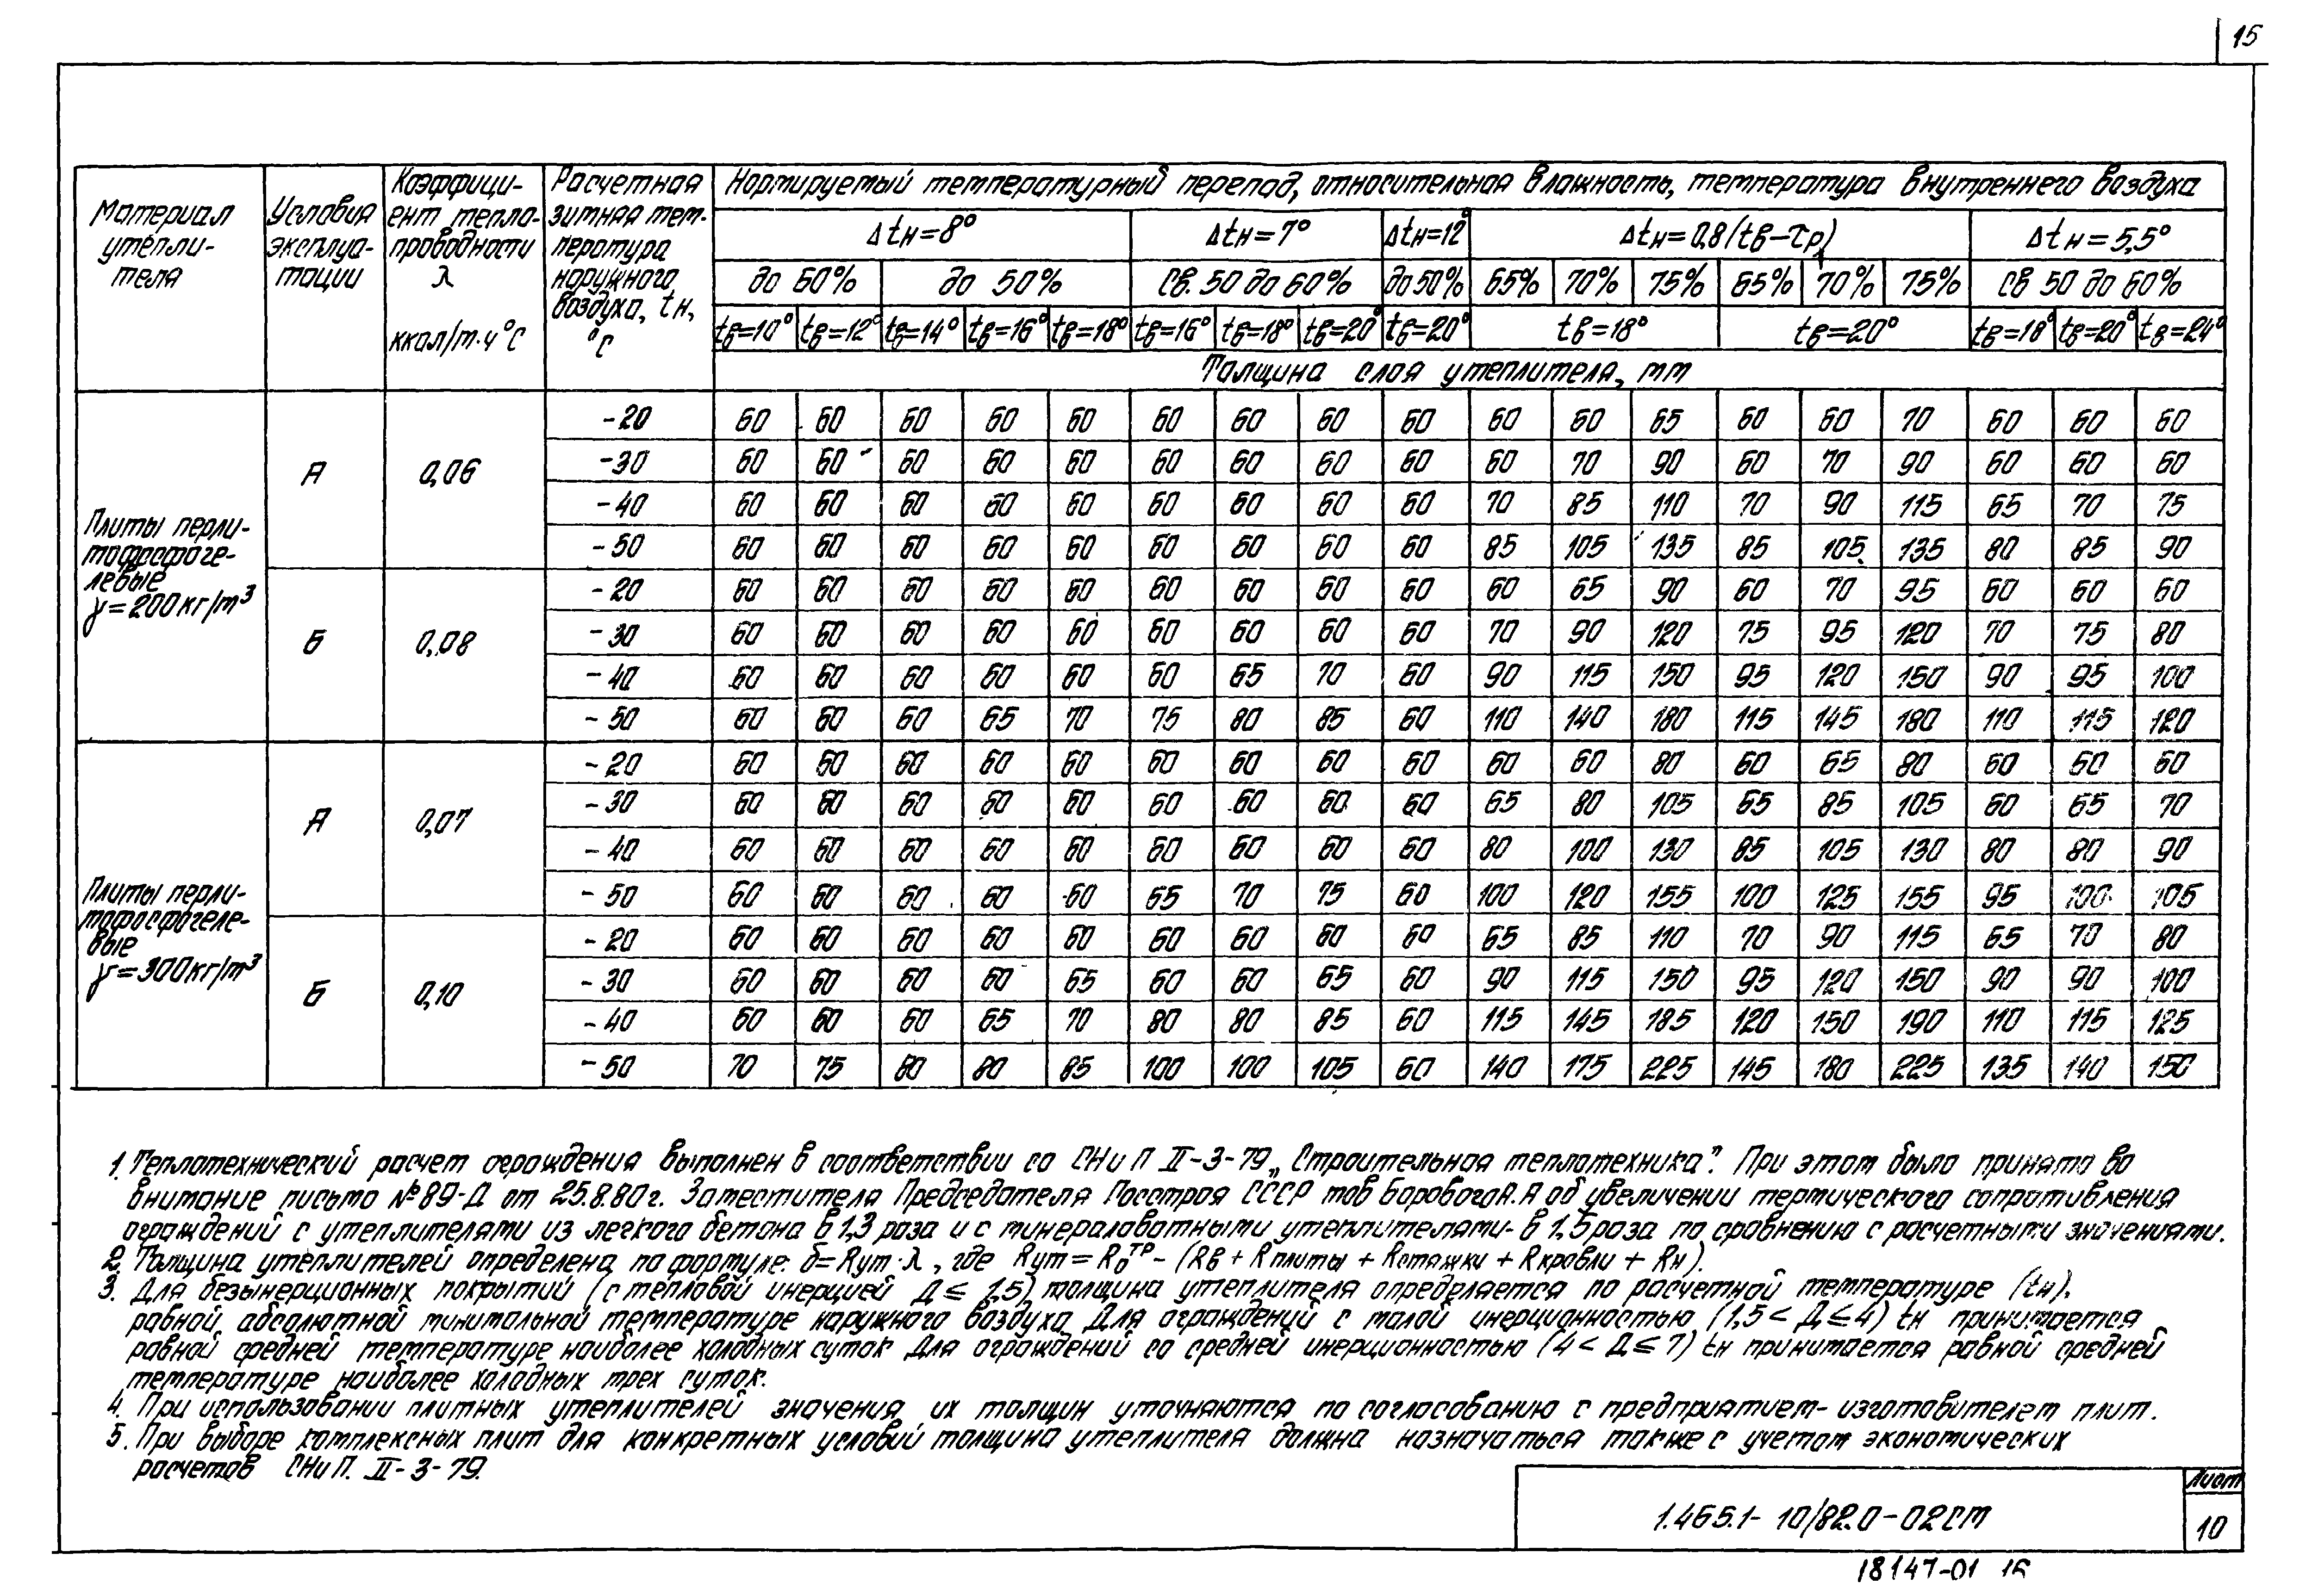 15
Материал утепли- теля
Условия эксплуа- тации
Коэффици- ент тепло- проводности λ ккал/м·ч°С
Расчетная зимняя тем- пература наружного воздуха, tн, °С
Нормируемый температурный перепад, относительная влажность, температура внутреннего воздуха
Δtн=8° Δtн=7° Δtн=12° Δtн=0,8(tв-τр) Δtн=5,5°
до 60% до 50% св. 50 до 60% до 50% 65% 70% 75% 65% 70% 75% св 50 до 60%
tв=10° tв=12° tв=14° tв=16° tв=18° tв=16° tв=18° tв=20° tв=20° tв=18° tв=20° tв=18° tв=20° tв=24°
Толщина слоя утеплителя, мм
Плиты перли- тофосфоге- левые γ=200кг/м³
А 0,06
-20 60 60 60 60 60 60 60 60 60 60 60 65 60 60 70 60 60 60
-30 60 60 60 60 60 60 60 60 60 60 70 90 60 70 90 60 60 60
-40 60 60 60 60 60 60 60 60 60 70 85 110 70 90 115 65 70 75
-50 60 60 60 60 60 60 60 60 60 85 105 135 85 105 135 80 85 90
Б 0,08
-20 60 60 60 60 60 60 60 60 60 60 65 90 60 70 95 60 60 60
-30 60 60 60 60 60 60 60 60 60 70 90 120 75 95 120 70 75 80
-40 60 60 60 60 60 60 65 70 60 90 115 150 95 120 150 90 95 100
-50 60 60 60 65 70 75 80 85 60 110 140 180 115 145 180 110 115 120
Плиты перли- тофосфогеле- вые γ=300кг/м³
А 0,07
-20 60 60 60 60 60 60 60 60 60 60 60 80 60 65 80 60 60 60
-30 60 60 60 60 60 60 60 60 60 65 80 105 65 85 105 60 65 70
-40 60 60 60 60 60 60 60 60 60 80 100 130 85 105 130 80 80 90
-50 60 60 60 60 60 65 70 75 60 100 120 155 100 125 155 95 100 105
Б 0,10
-20 60 60 60 60 60 60 60 60 60 65 85 110 70 90 115 65 70 80
-30 60 60 60 60 65 60 60 65 60 90 115 150 95 120 150 90 90 100
-40 60 60 60 65 70 80 80 85 60 115 145 185 120 150 190 110 115 125
-50 70 75 80 80 85 100 100 105 60 140 175 225 145 180 225 135 140 150
1. Теплотехнический расчет ограждения выполнен в соответствии со СНиП II-3-79 „Строительная теплотехника". При этом было принято во
внимание письмо №89-Д от 25.8.80г. Заместителя Председателя Госстроя СССР тов Борового А.А об увеличении термического сопротивления
ограждений с утеплителями из легкого бетона в 1,3 раза и с минераловатными утеплителями- в 1,5 раза по сравнению с расчетными значениями.
2. Толщина утеплителей определена по формуле: δ=Rут·λ, где Rут=R₀ᵀᴾ-(Rв+Rплиты+Rстяжки+Rкровли+Rн).
3. Для безынерционных покрытий (с тепловой инерцией Д≤1,5) толщина утеплителя определяется по расчетной температуре (tн),
равной абсолютной минимальной температуре наружного воздуха. Для ограждений с малой инерционностью (1,5<Д≤4) tн принимается
равной средней температуре наиболее холодных суток. Для ограждений со средней инерционностью (4<Д≤7) tн принимается равной средней
температуре наиболее холодных трех суток.
4. При использовании плитных утеплителей значения их толщин уточняются по согласованию с предприятием-изготовителем плит.
5. При выборе комплексных плит для конкретных условий толщина утеплителя должна назначаться также с учетом экономических
расчетов СНиП. II-3-79.
1.465.1-10/82.0-02СМ
Лист
10
18147-01 16